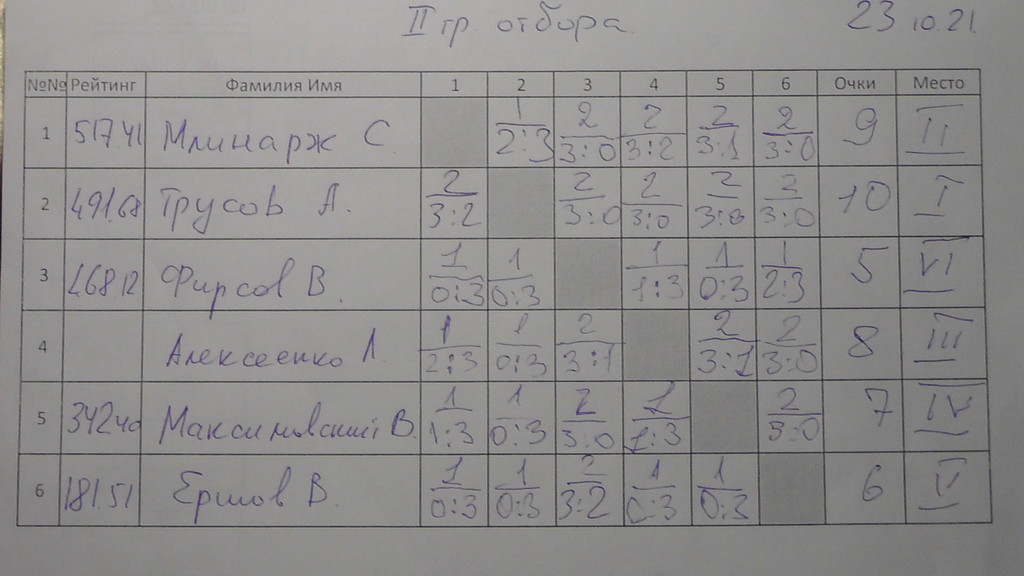 II гр. отбора. 23.10.21.
№№ Рейтинг Фамилия Имя 1 2 3 4 5 6 Очки Место
1 517.41 Млинарж С. 1 2:3 2 3:0 2 3:2 2 3:1 2 3:0 9 II
2 491.68 Трусов А. 2 3:2 2 3:0 2 3:0 2 3:0 2 3:0 10 I
3 468.12 Фирсов В. 1 0:3 1 0:3 1 1:3 1 0:3 1 2:3 5 VI
4 Алексеенко Л. 1 2:3 1 0:3 2 3:1 2 3:1 2 3:0 8 III
5 342.40 Максимовский В. 1 1:3 1 0:3 2 3:0 1 1:3 2 3:0 7 IV
6 181.51 Ершов В. 1 0:3 1 0:3 2 3:2 1 0:3 1 0:3 6 V